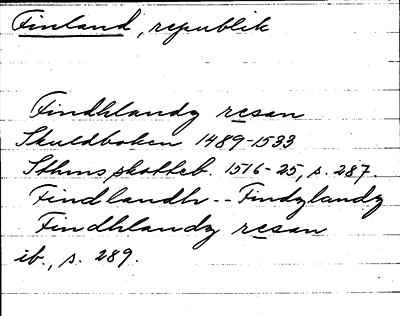 Finland, republik
Findhlandz resan
Skuldboken 1489-1533
Sthms skotteb. 1516-25, s. 287.
Findlandh -- Findzlandz
Findhlandz resan
ib., s. 289.